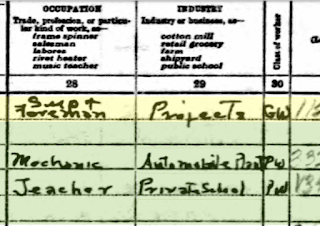 OCCUPATION
INDUSTRY
Trade, profession, or particu-
lar kind of work, as—
frame spinner
salesman
laborer
rivet heater
music teacher
Industry or business, as—
cotton mill
retail grocery
farm
shipyard
public school
Class of worker
28
29
30
Supt
Foreman
Projects
GW
Mechanic
Automobile Plant
PW
Teacher
Private School
PW